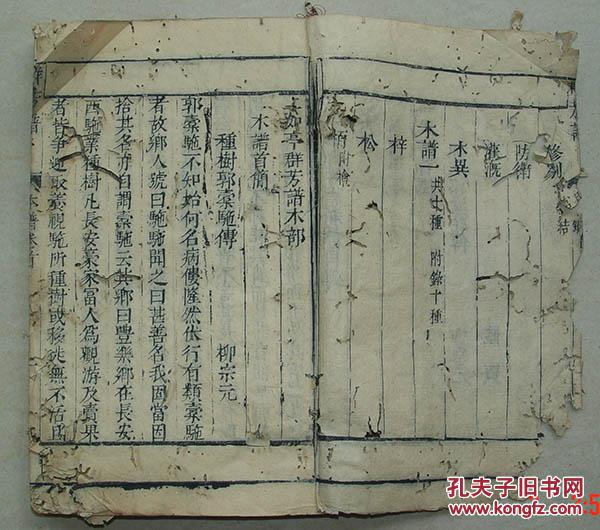 修剔
防衛
灌溉
木異
木譜一 共七種 附錄十種
梓
松
栢 附檜
二如亭群芳譜木部
木譜首簡
種樹郭橐駞傳 柳宗元
郭橐駞不知始何名病僂隆然伏行有類橐駞
者故鄉人號曰駞駞聞之曰甚善名我固當因
捨其名亦自謂橐駞云其鄉曰豐樂鄉在長安
西駞業種樹凡長安豪家富人為觀游及賣果
者皆爭迎取養視駞所種樹或移徙無不活
孔夫子旧书网
www.kongfz.com